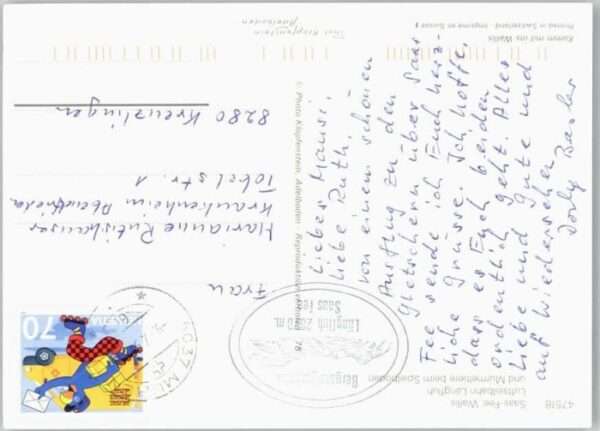 47518
Saas-Fee, Wallis
Luftseilbahn Längfluh
und Murmeltiere beim Spielboden
Liebes Mausi,
liebe Ruth,
von einem schönen
Ausflug zu den
Gletschern über Saas
Fee sende ich Euch herz-
liche Grüsse. Ich hoffe,
dass es Euch beiden
ordentlich geht. Alles
Liebe und Gute und
auf Wiedersehen
Längfluh
Saas Fee
© Photo Klopfenstein, Adelboden
70
Frau
Marianne Rutishauser
Krankenheim Abendfrieden
Tobelstr. 1
8280 Kreuzlingen
Klopfenstein
Adelboden
Wallis
Printed in Switzerland